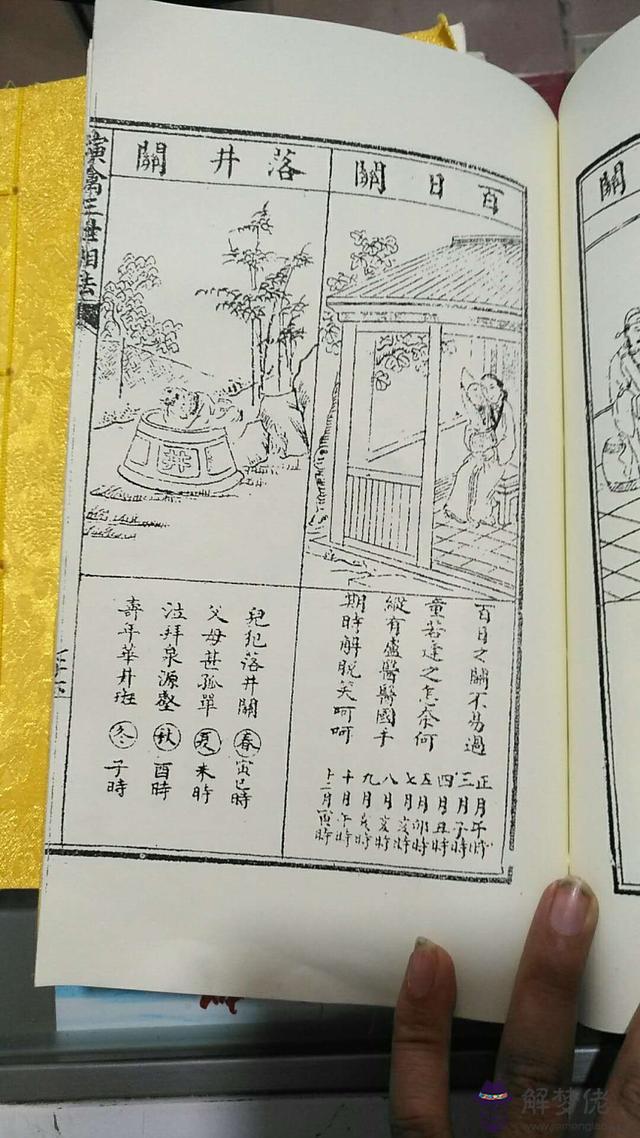 關
百日關
百日之關不易過
童若逢之怎奈何
縱有盧醫醫國手
期時解脫笑呵呵
正月午時
三月子時
四月丑時
五月卯時
七月亥時
八月亥時
九月時
十月午時
十二月寅時
落井關
井
兒犯落井關 春 寅巳時
父母甚孤單 夏 未時
泣拜泉源 秋 酉時
壽年華井班 冬 子時
演禽三世相法
解梦佬